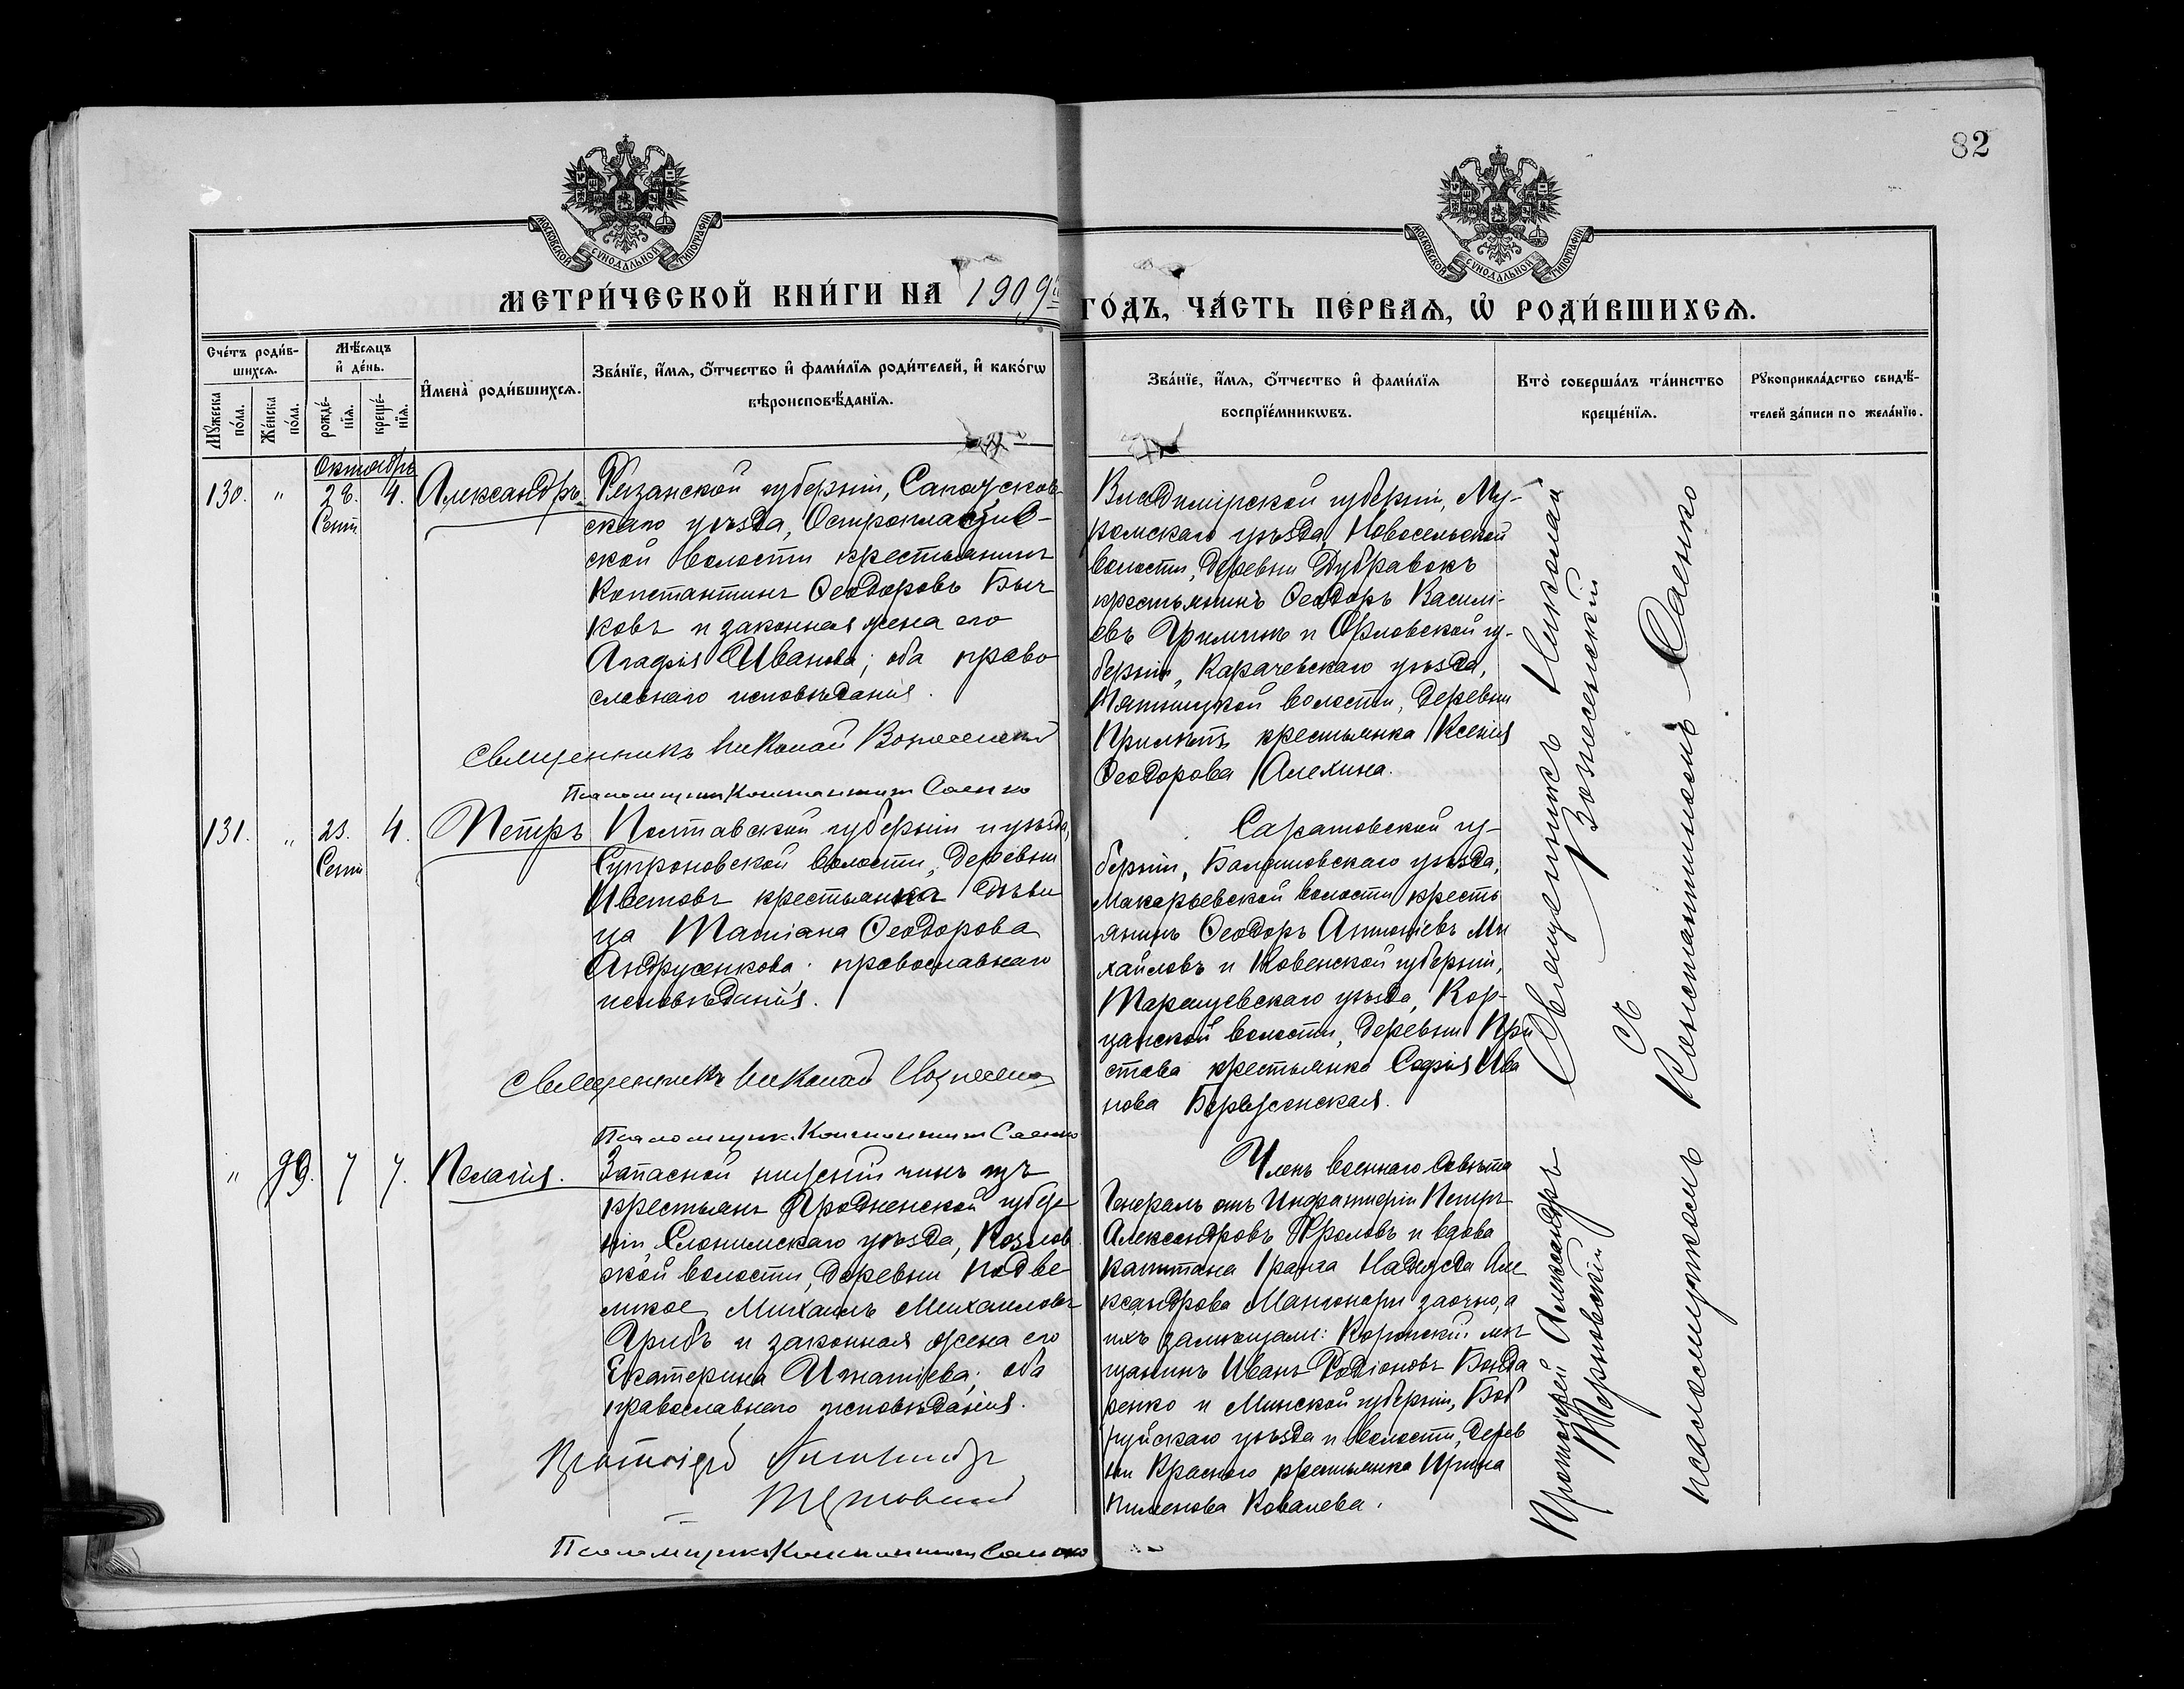 82
МОСКОВСКОЙ СѴНОДАЛЬНОЙ ТИПОГРАФІИ
МОСКОВСКОЙ СѴНОДАЛЬНОЙ ТИПОГРАФІИ
МЕТРИ́ЧЕСКОЙ КНИ́ГИ НА 1909й ГО́ДЪ, ЧА́СТЬ ПЕ́РВАѦ, Ѡ҆ РОДИ́ВШИХСѦ.
Сче́тъ роди́в-
шихсѧ.
Мꙋ́жеска по́ла.
Же́нска по́ла.
Мѣ́сѧцъ
и҆ де́нь.
рожде́-
нїѧ.
креще́-
нїѧ.
И҆мена̀ роди́вшихсѧ.
Зва́нїе, и҆́мѧ, ѻ҆́тчество и҆ фами́лїѧ роди́телей, и҆ како́гѡ
вѣроисповѣ́данїѧ.
Зва́нїе, и҆́мѧ, ѻ҆́тчество и҆ фами́лїѧ
воспрїе́мникѡвъ.
Кто̀ соверша́лъ та́инство
креще́нїѧ.
Рꙋкоприкла́дство свидѣ́-
телей за́писи по жела́нїю.
Октябрь
130. " 28. 4. Александръ
Сент
Рязанской губерніи, Сапожков-
скаго уѣзда, Остропластиков-
ской волости крестьянинъ
Константинъ Ѳеодоровъ Быч
ковъ и законная жена его
Агафія Иванова; оба право
славнаго исповѣданія.
Священникъ Николай Вознесенскій
Псаломщикъ Константинъ Саенко
Владимірской губерніи, Му-
ромскаго уѣзда, Новосельской
волости, деревни Дубравокъ
крестьянинъ Ѳеодоръ Василі-
евъ Гришинъ и Орловской гу-
берніи, Карачевскаго уѣзда,
волости, деревни
крестьянка Ксенія
Ѳеодорова Алехина.
131. " 23. 4. Петръ
Сент
Полтавской губерніи и уѣзда,
Супроновской волости, деревни
Ивашовъ крестьянка дѣви
ца Татіана Ѳеодорова
Андрусенкова; православнаго
исповѣданія.
Священникъ Николай Вознесенскій
Псаломщикъ Константинъ Саенко
Саратовской гу-
берніи, Балашовскаго уѣзда,
Макарьевской волости кресть
янинъ Ѳеодоръ Антоніевъ Ми
хайловъ и Ковенской губерніи,
уѣзда, Кор-
цанской волости, деревни При
става крестьянка Софія Ива
нова
" 99. 7 7. Пелагія.
Запасной нижній чинъ изъ
крестьянъ Гродненской губер
ніи Слонимскаго уѣзда, Козлов
ской волости, деревни Подве
ликое Михаилъ Михаиловъ
Грибъ и законная жена его
Екатерина Игнатіева; оба
православнаго исповѣданія.
Протоіерей Александръ
Терновскій
Псаломщикъ Константинъ Саенко
Членъ военнаго Совѣта
Генералъ отъ Инфантеріи Петръ
Александровъ Фроловъ и вдова
капитана 1 ранга Надежда Але
ксандрова заочно, а
ихъ замѣщали: Коропскій мѣ
щанинъ Иванъ Родіоновъ Бонда
ренко и Минской губерніи, Боб
руйскаго уѣзда и волости, дерев
ни Краснаго крестьянка Ирина
Пименова Ковалева.
Священникъ Николай
Вознесенскій
Протоіерей Александръ
Терновскій
съ
псаломщикомъ Константиномъ Саенко